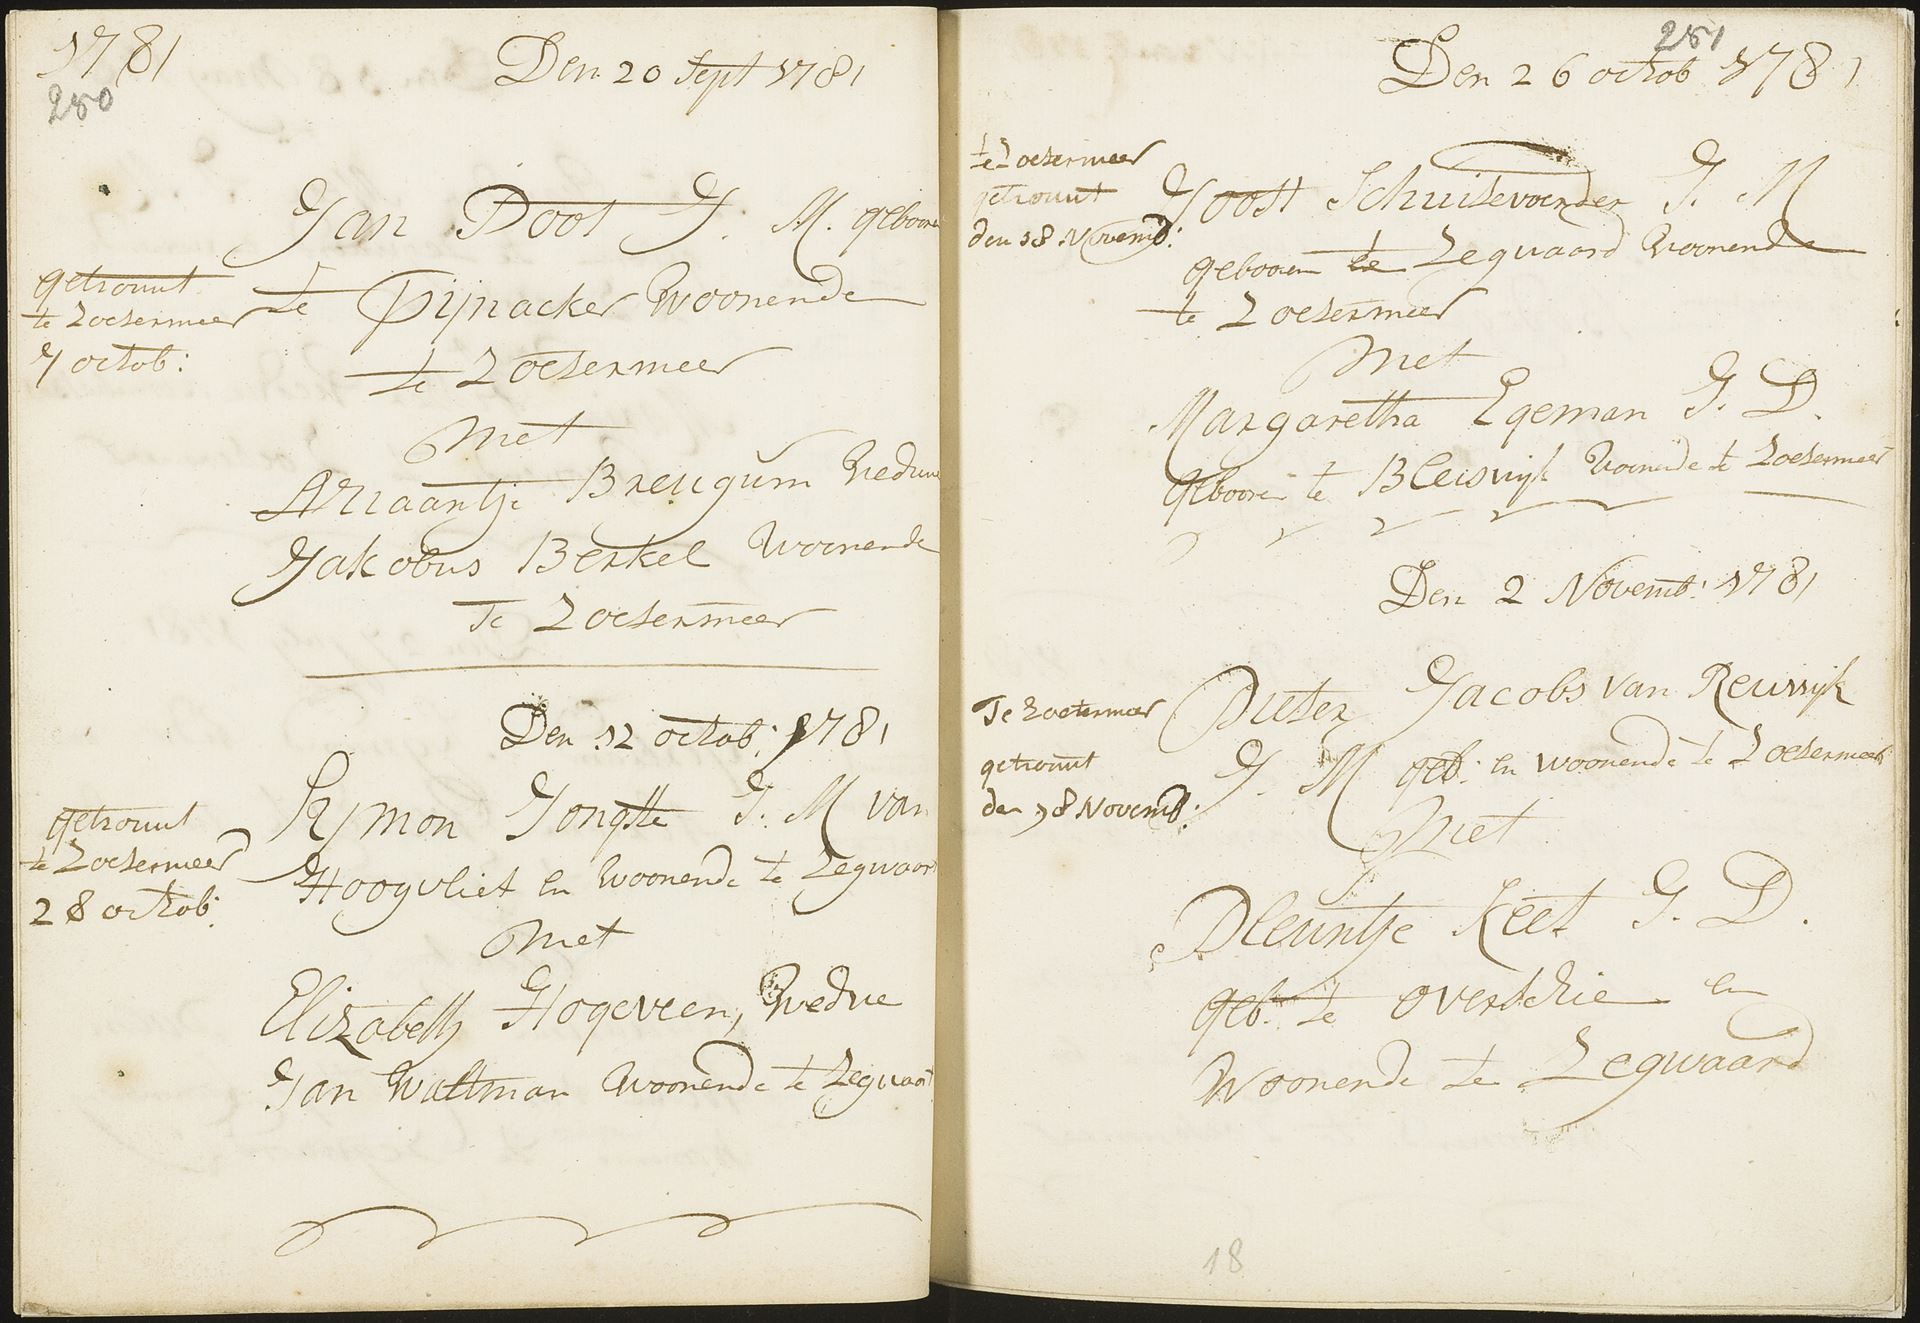 1781
250
Den 20 Sept 1781
Jan Poot J. M. geboore
te Pijnacker Woonende
te Zoetermeer
getrouwt
te Zoetermeer
7 octob:
met
Ariaantje Breugum Weduwe
Jakobus Berkel Woonende
Te Zoetermeer
Den 12 octob: 1781
Symon Jongste J. M van
Hoogvliet en Woonende te Zegwaart
getrouwt
te Zoetermeer
28 octob:
met
Elizabeth Hogeveen, Wedue
Jan Waltman Woonende te Zegwaart
251
Den 26 octob 1781
te Zoetermeer
getrouwt
den 18 Novemb:
Joost Schuitevoerder J. M
gebooren te Zegwaard Woonende
te Zoetermeer
met
Margaretha Egeman J. D.
gebooren te Bleiswijk Woonende te Zoetermeer
Den 2 Novemb: 1781
Te Zoetermeer
getrouwt
den 18 Novemb:
Pieter Jacobs van Reuwijk
J. M geb: en woonende te Zoetermeer
Met
Pleuntje Keet J. D.
geb: te overschie en
Woonende te Zegwaard
18